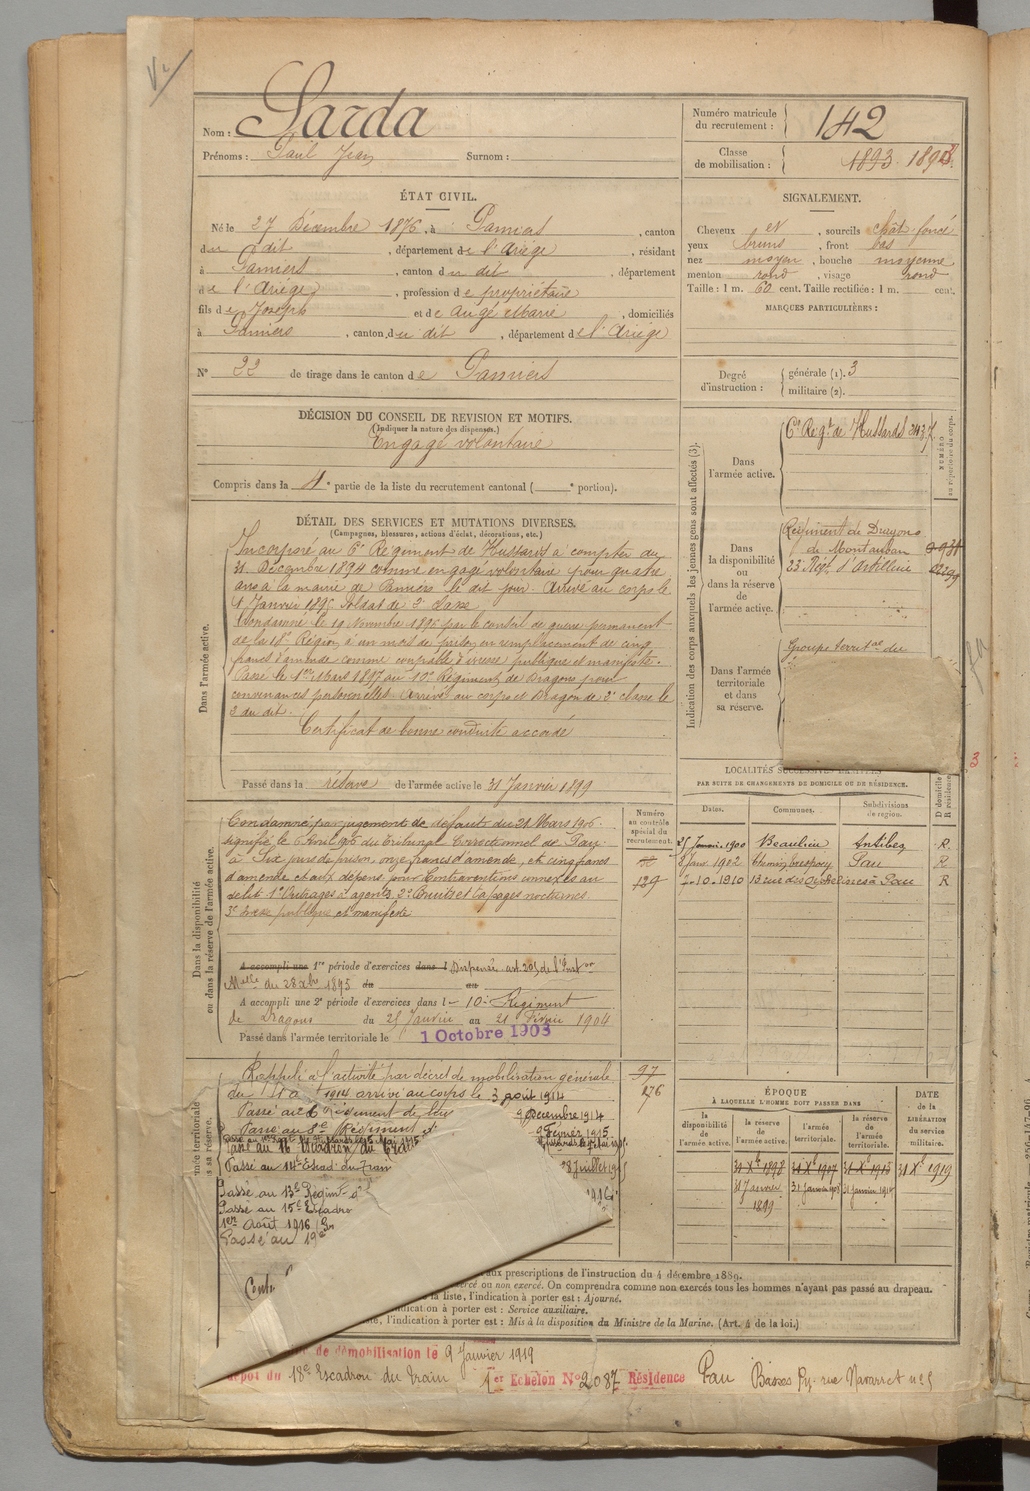 Nom : Sarda
Prénoms : Paul Jean Surnom :
Numéro matricule du recrutement : 142
Classe de mobilisation : 1893
ÉTAT CIVIL.
Né le 27 Décembre 1876, à Pamiers, canton
du dit, département de l'Ariège, résidant
à Pamiers, canton du dit, département
de l'Ariège, profession de propriétaire
fils de Joseph et de Augé Marie, domiciliés
à Pamiers, canton du dit, département de l'Ariège
N° 22 de tirage dans le canton de Pamiers
SIGNALEMENT.
Cheveux et, sourcils chât. foncé
yeux bruns, front bas
nez moyen, bouche moyenne
menton rond, visage rond
Taille : 1 m. 60 cent. Taille rectifiée : 1 m. cent.
MARQUES PARTICULIÈRES :
Degré d'instruction : générale (1). 3
militaire (2).
DÉCISION DU CONSEIL DE REVISION ET MOTIFS.
(Indiquer la nature des dispenses.)
Engagé volontaire
Compris dans la 4e partie de la liste du recrutement cantonal ( e portion).
DÉTAIL DES SERVICES ET MUTATIONS DIVERSES.
(Campagnes, blessures, actions d'éclat, décorations, etc.)
Dans l'armée active.
Incorporé au 6e Régiment de Hussards à compter du
31 Décembre 1894 comme engagé volontaire pour quatre
ans à la mairie de Pamiers le dit jour. Arrivé au corps le
1 Janvier 1895 Soldat de 2e classe
Condamné le 19 Novembre 1896 par le conseil de guerre permanent
de la 18e Région à un mois de prison en remplacement de cinq
francs d'amende comme coupable d'ivresse publique et manifeste.
Passé le 1er Mars 1897 au 10e Régiment de Dragons pour
convenances personnelles. Arrivé au corps et Dragon de 2e classe le
2 du dit.
Certificat de bonne conduite accordé
Passé dans la réserve de l'armée active le 31 Janvier 1899
Indication des corps auxquels les jeunes gens sont affectés (3).
NUMÉRO au répertoire du corps.
Dans l'armée active.
6e Régt de Hussards 2437
Dans la disponibilité ou dans la réserve de l'armée active.
Régiment de Dragons
de Montauban
23e Régt d'Artillerie
Dans l'armée territoriale et dans sa réserve.
Groupe territal du
PAR SUITE DE CHANGEMENTS DE DOMICILE OU DE RÉSIDENCE.
Dates. Communes. Subdivisions de région. D domicile R résidence
25 Janvier 1900 Beaulieu Antibes R.
8 Janv. 1902 Pau R
7-10-1910 13 rue des à Pau R
Dans la disponibilité ou dans la réserve de l'armée active.
Numéro au contrôle spécial du recrutement.
139
Condamné par jugement de défaut du 21 Mars 1906.
signifié le Avril 906 du Tribunal Correctionnel de Pau
à Six jours de prison, onze francs d'amende, et cinq francs
d'amende et aux dépens pour Contraventions connexes au
délit 1° Outrages à agents 2° Bruits et tapages nocturnes
3° Ivresse publique et manifeste
A accompli une 1re période d'exercices dans l Dispensé art. 205 de l'Instr
Melle du 28 Xbre 1895 du au
A accompli une 2e période d'exercices dans l e 10e Régiment
de Dragons du 25 Janvier au 21 Février 1904
Passé dans l'armée territoriale le 1 Octobre 1903
97
276
Rappelé à l'activité par décret de mobilisation générale
du 1 1914 arrivé au corps le 3 août 1914
Passé au Régiment de
9 Décembre 1914
Passé au 8e Régiment
9 Février 1915
Passé au 16 Escadron du Train
Passé au 14e Escad. du Train
28 Juillet
Passé au 13e Régimt
Passé au 15e Escadro
1er Août 1916
Passé au 19e
ÉPOQUE
À LAQUELLE L'HOMME DOIT PASSER DANS
la disponibilité de l'armée active. la réserve de l'armée active. l'armée territoriale. la réserve de l'armée territoriale.
DATE de la LIBÉRATION du service militaire.
31 Xbre 1898 31 Xbre 1907 31 Xbre 1913 31 Xbre 1919
31 Janvier 1899
aux prescriptions de l'instruction du 4 décembre 1889.
ercé ou non exercé. On comprendra comme non exercés tous les hommes n'ayant pas passé au drapeau.
la liste, l'indication à porter est : Ajourné.
ndication à porter est : Service auxiliaire.
ste, l'indication à porter est : Mis à la disposition du Ministre de la Marine. (Art. 4 de la loi.)
de démobilisation le 9 Janvier 1919
épôt du 18e Escadron du Train 1er Echelon N° 2087 Résidence Pau Basses Py. rue Navarret n°5